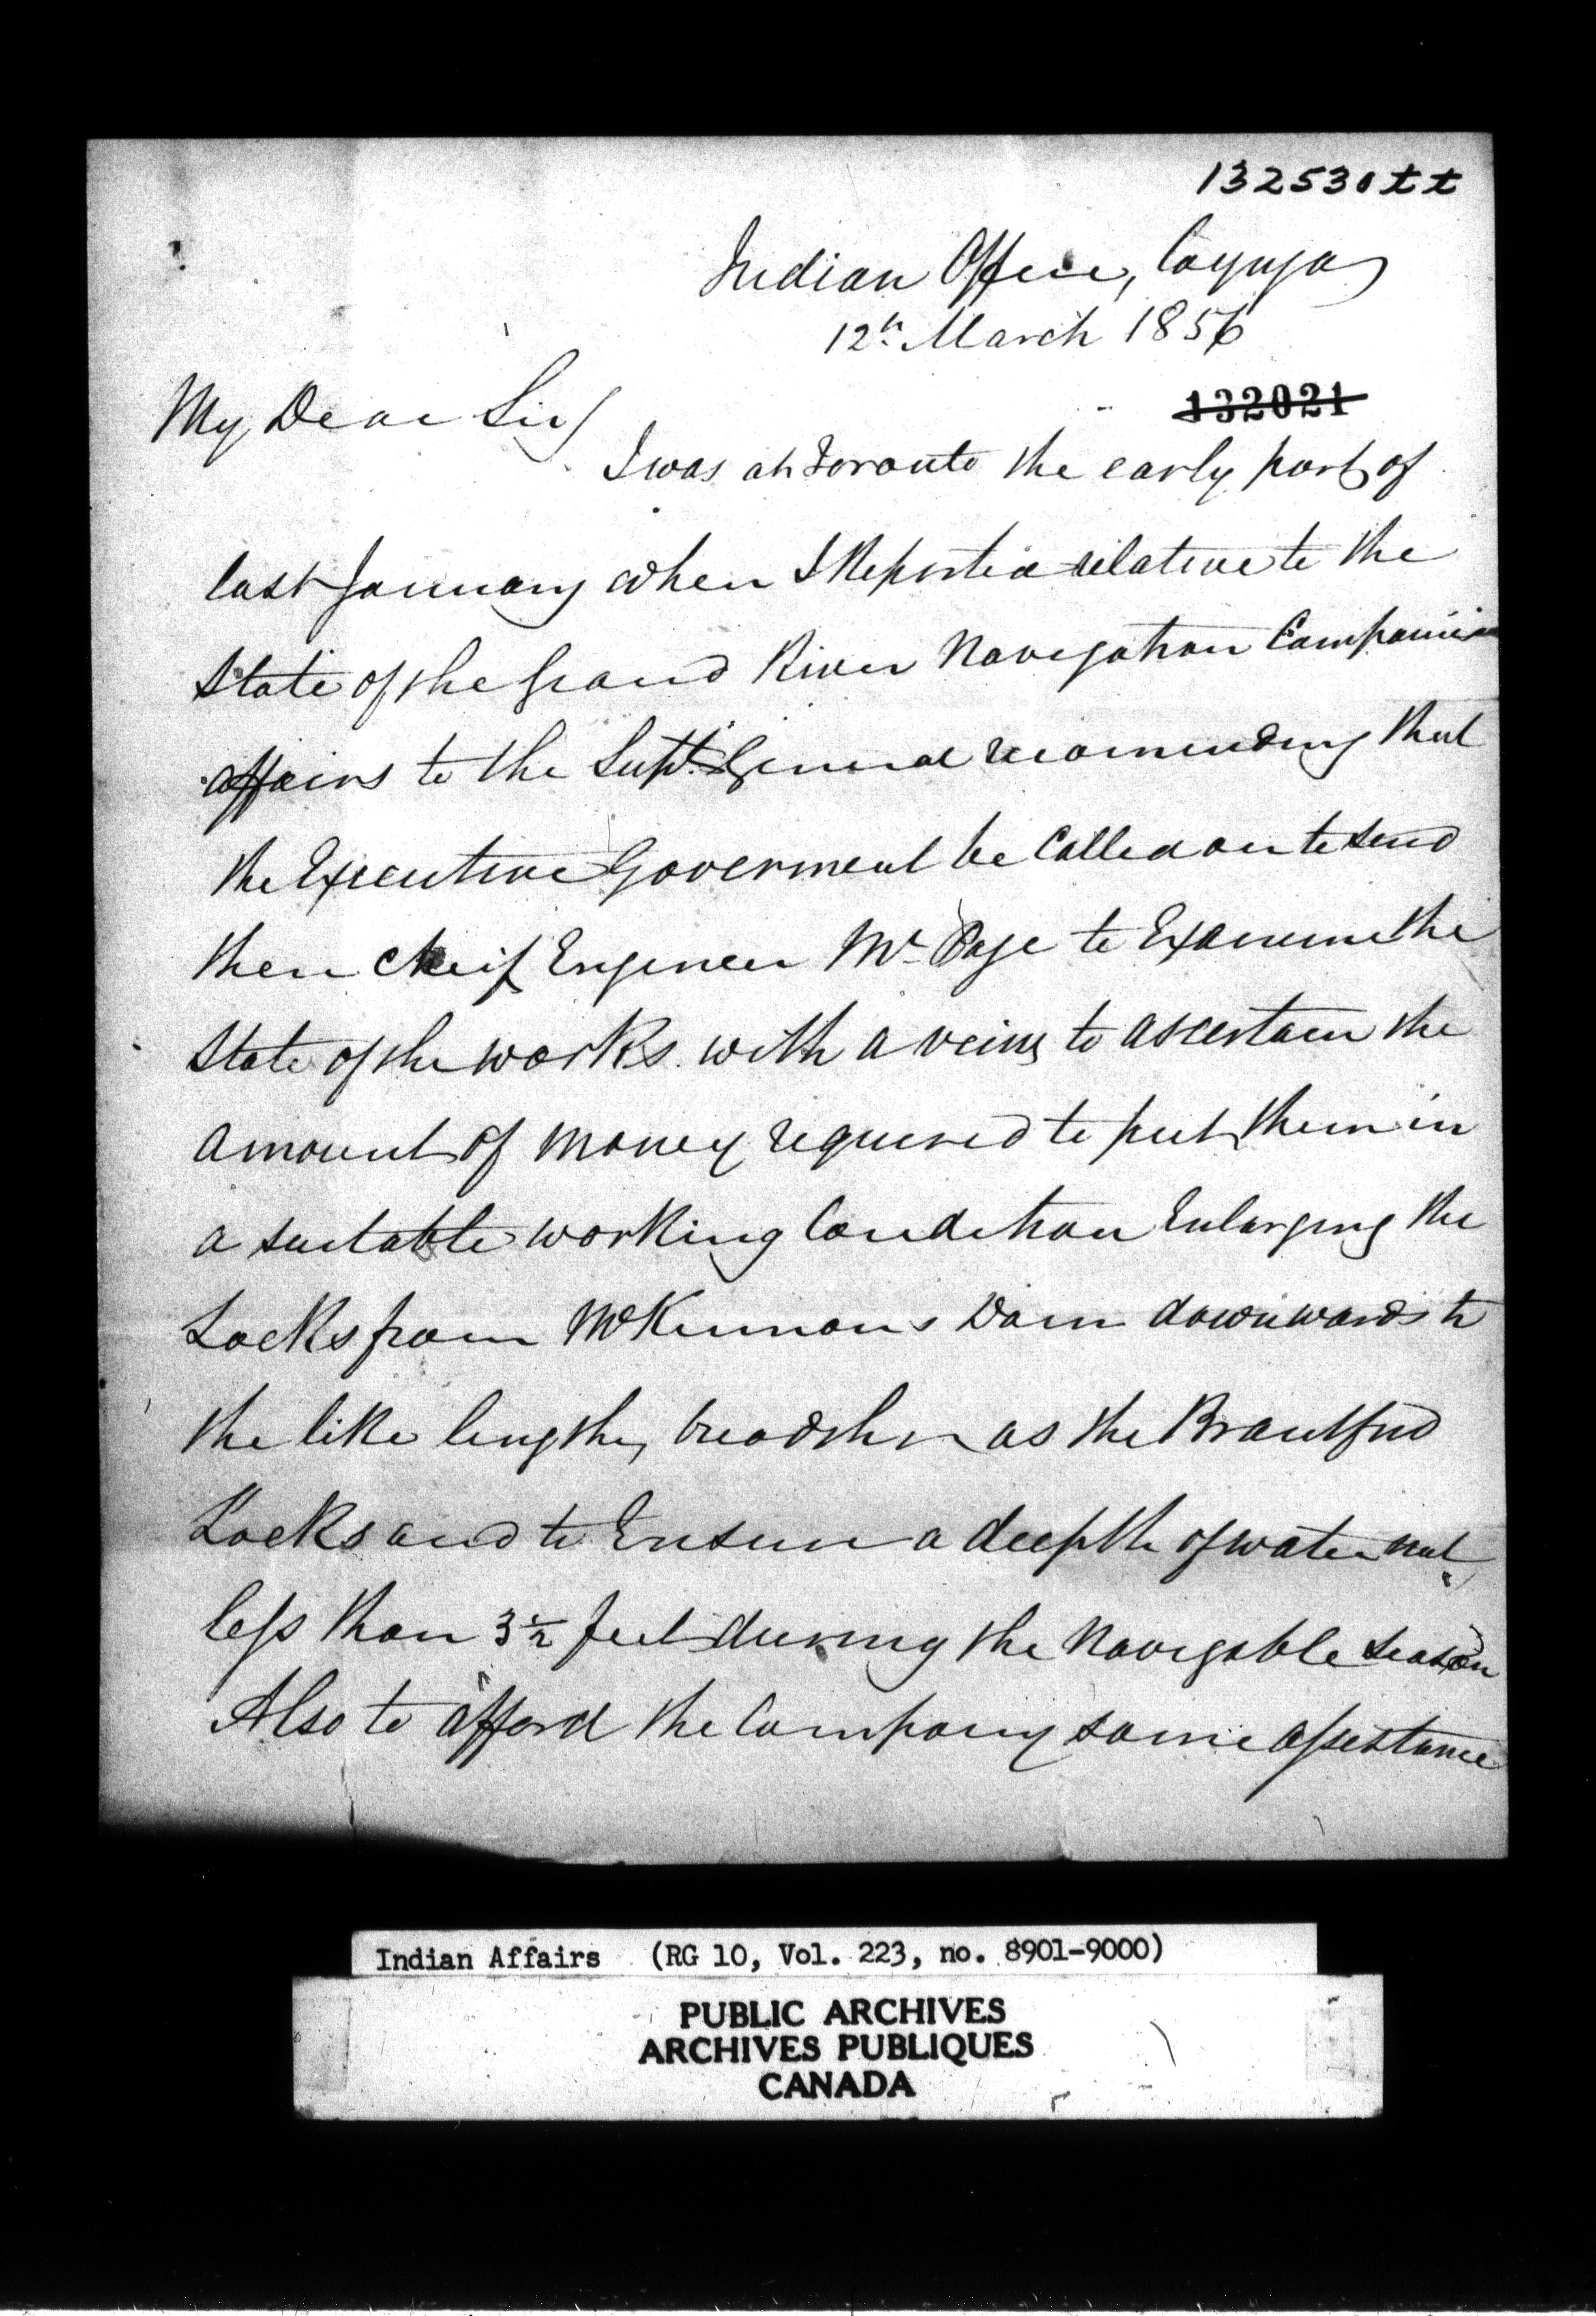 132530tt
Indian Office, Cayuga
12th March 1856
132021
My Dear Sir/
I was at Toronto the early part of
last January when I Reported relative to the
State of the Grand River Navigation Companies
affairs to the Supt. General recomending that
the Executive Goverment be Called on to send
their Cheif Engineer Mr Page to Examine the
State of the works with a veiw to ascertain the
amount of money required to put them in
a suitable working Condition Enlarging the
Locks from McKinnons Dam downwards to
the like length, breadth as the Brantford
Locks and to Ensure a deepth of water not
less than 3½ feet during the Navigable season
Also to afford the Company some assistance
Indian Affairs (RG 10, Vol. 223, no. 8901-9000)
PUBLIC ARCHIVES
ARCHIVES PUBLIQUES
CANADA